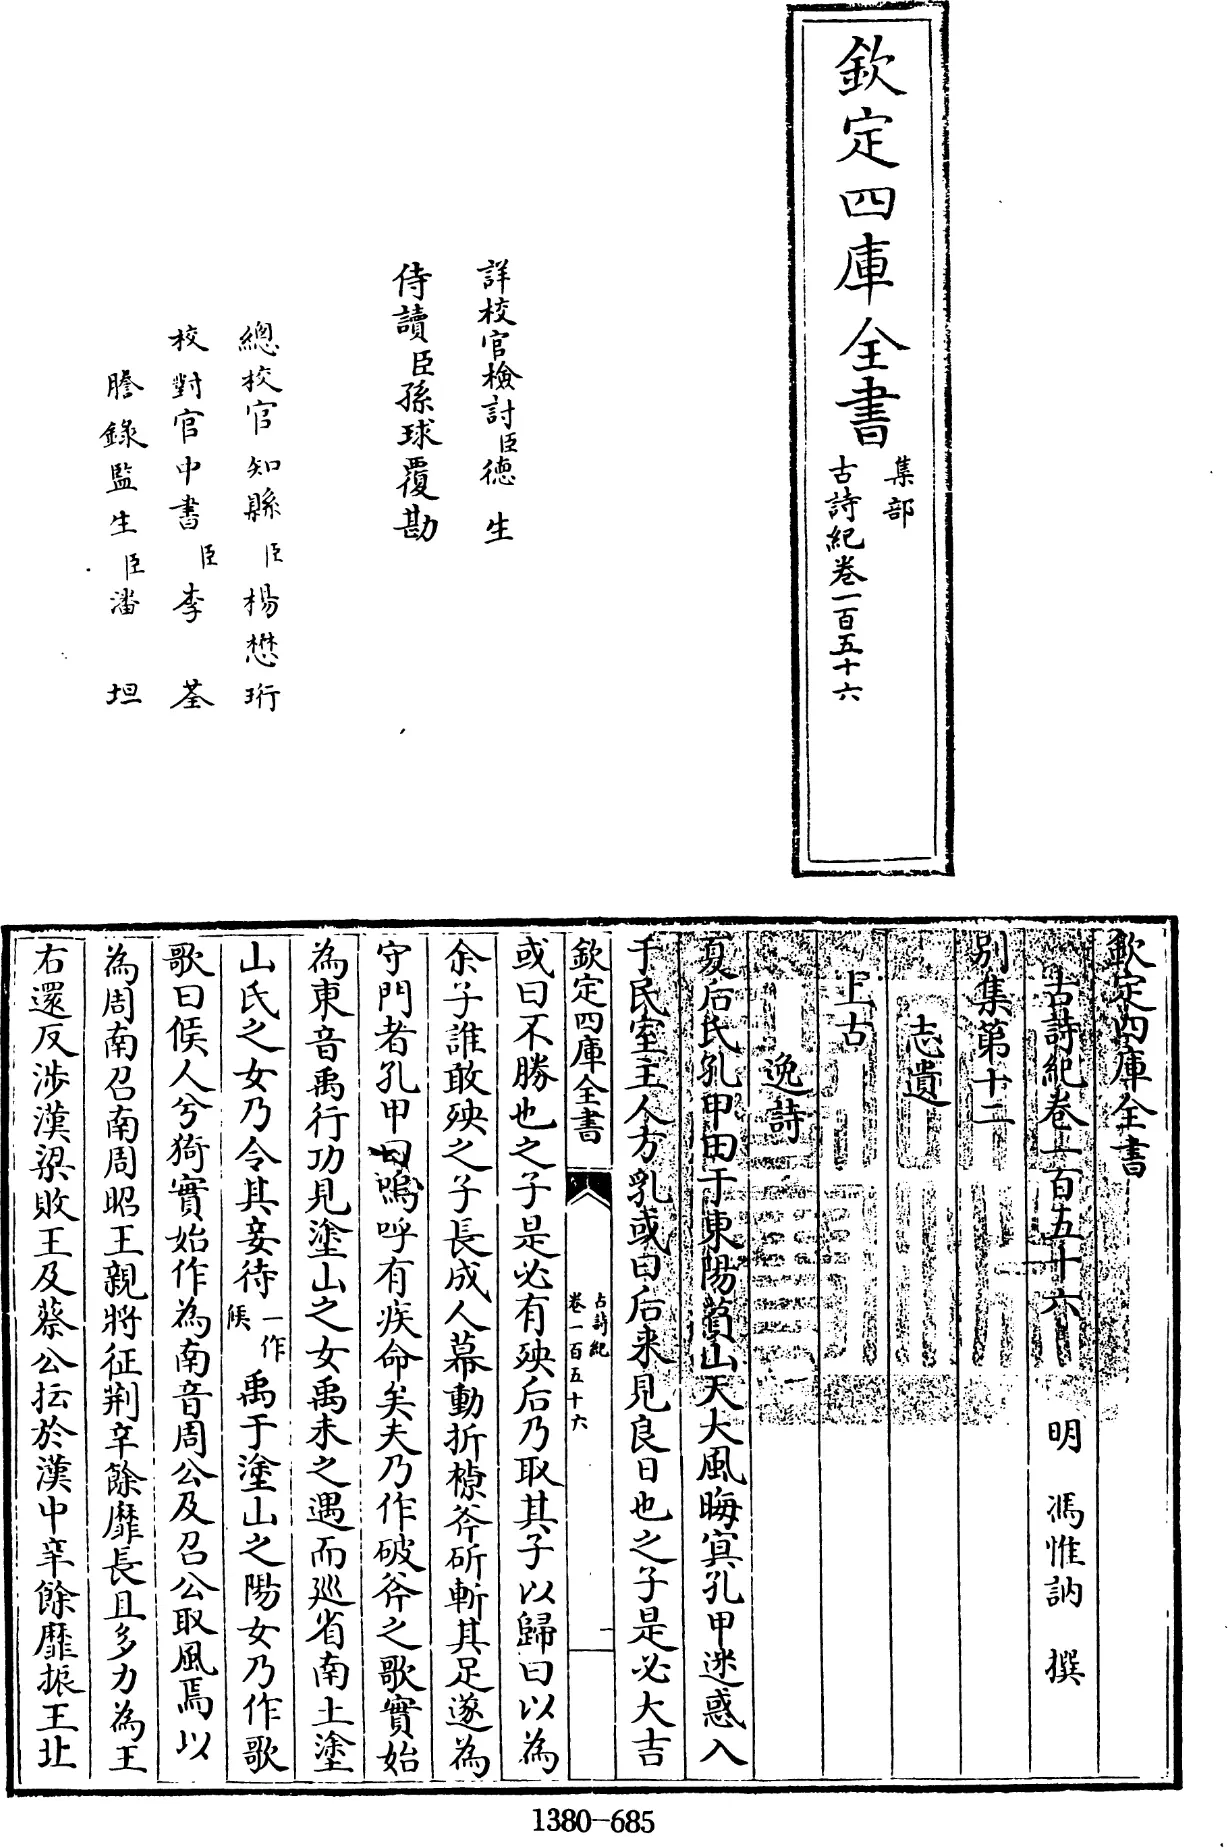 欽定四庫全書
集部
古詩紀卷一百五十六
詳校官檢討臣德生
侍讀臣孫球覆勘
總校官知縣臣楊懋珩
校對官中書臣李荃
謄錄監生臣潘坦
欽定四庫全書
古詩紀卷一百五十六 明 馮惟訥 撰
別集第十二
志遺
上古
逸詩
夏后氏孔甲田于東陽萯山天大風晦冥孔甲迷惑入
于民室主人方乳或曰后来見良日也之子是必大吉
欽定四庫全書
古詩紀
卷一百五十六
一
或曰不勝也之子是必有殃后乃取其子以歸曰以為
余子誰敢殃之子長成人幕動折橑斧斫斬其足遂為
守門者孔甲曰嗚呼有疾命矣夫乃作破斧之歌實始
為東音禹行功見塗山之女禹未之遇而廵省南土塗
山氏之女乃令其妾待一作候禹于塗山之陽女乃作歌
歌曰候人兮猗實始作為南音周公及召公取風焉以
為周南召南周昭王親將征荆辛餘靡長且多力為王
右還反涉漢梁敗王及蔡公抎於漢中辛餘靡振王北
1380-685